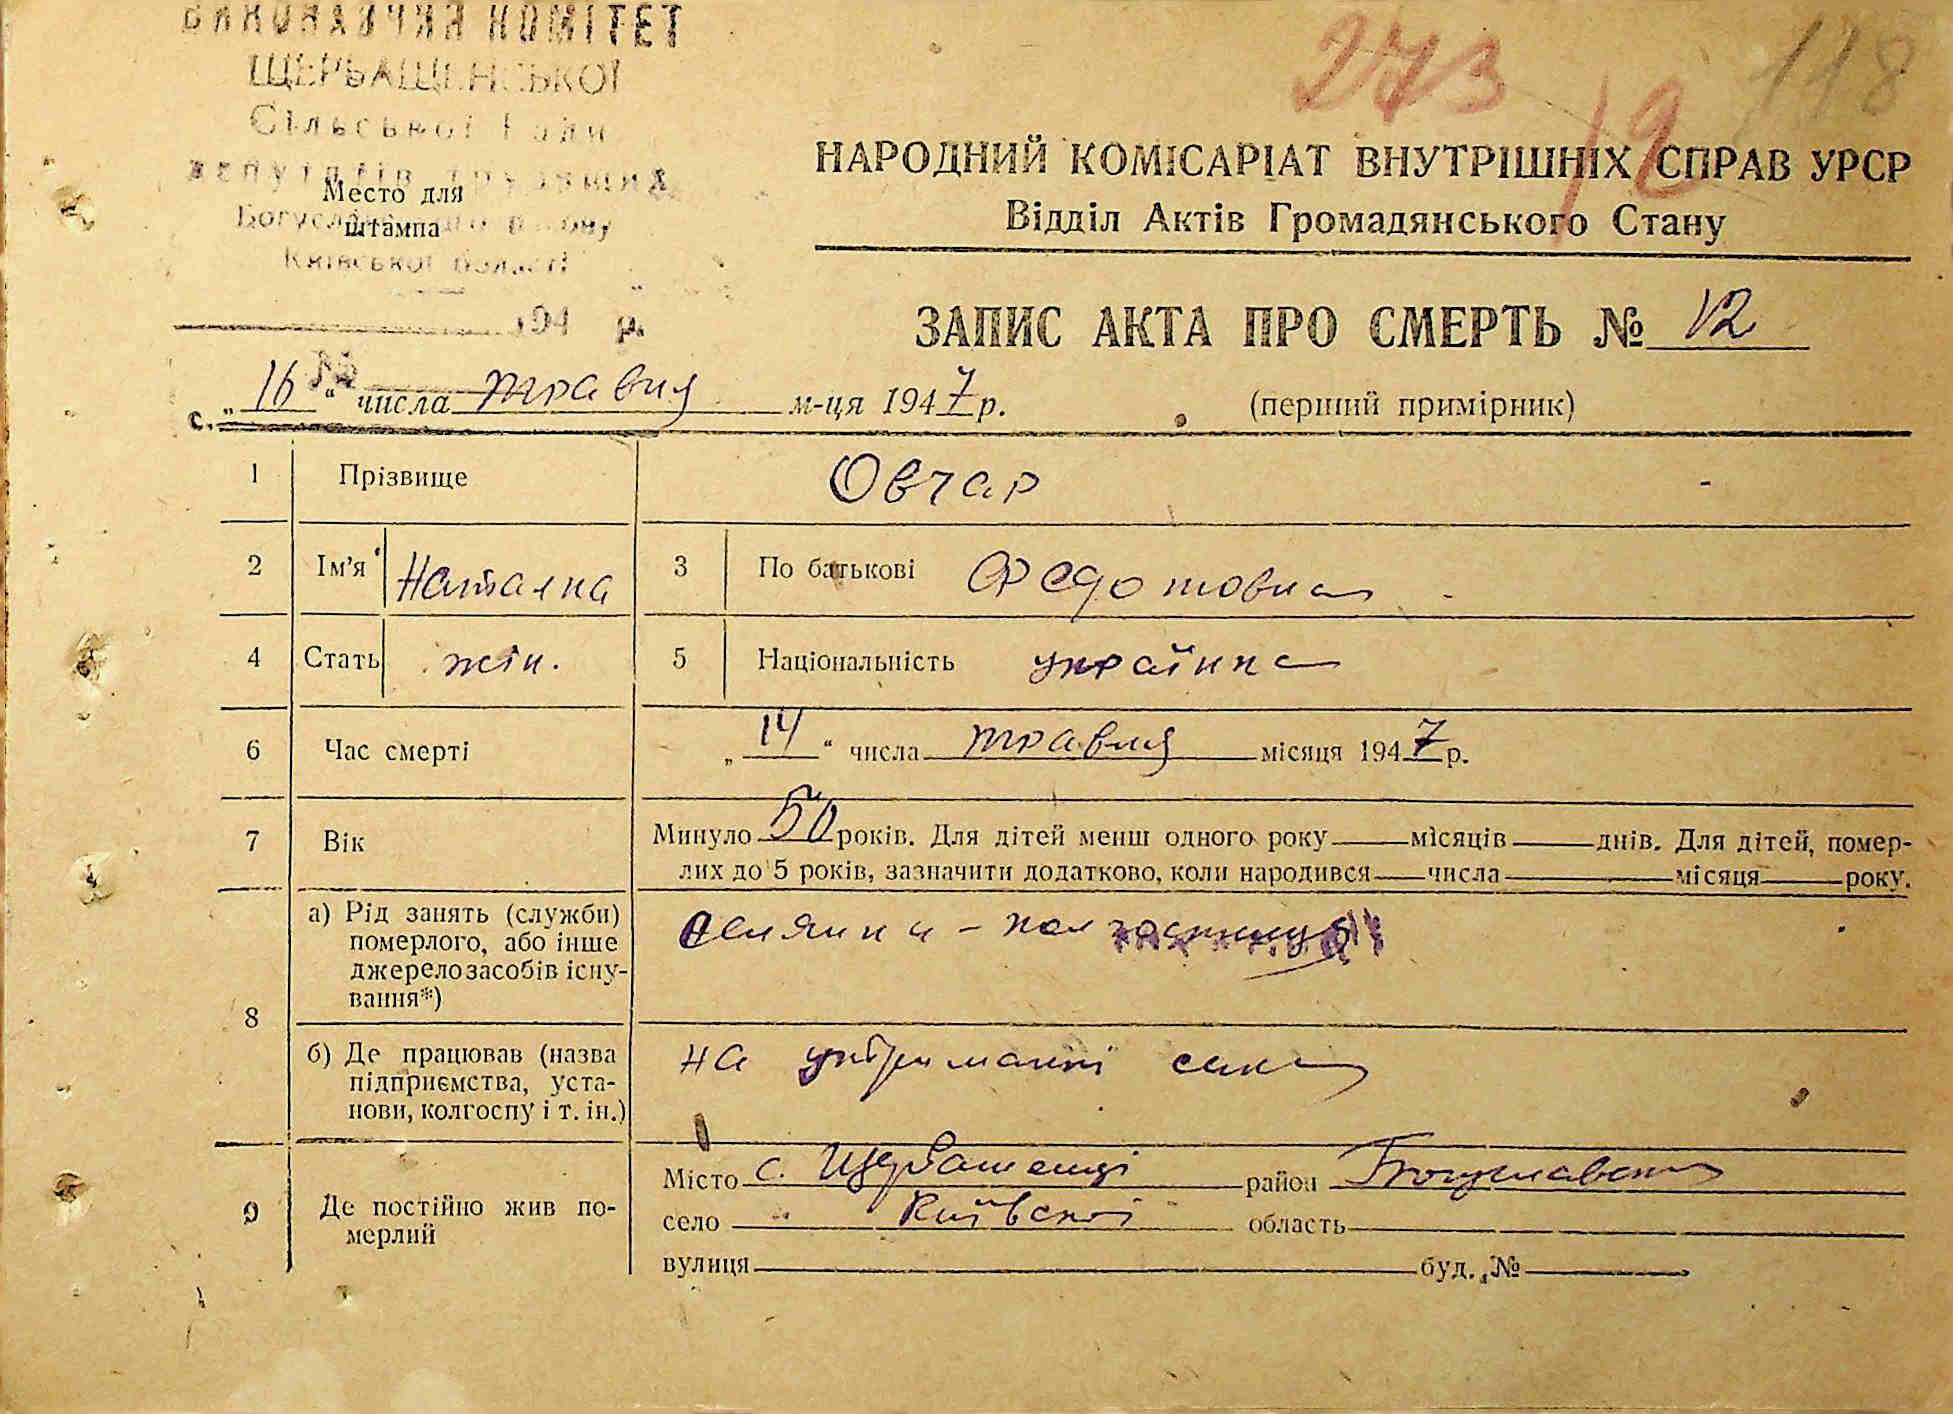 ВИКОНАВЧИЙ КОМІТЕТ
ЩЕРБАШЕНСЬКОЇ
Сільської Ради
депутатів трудящих
Богуславського району
Київської області
Место для
штампа
194 р.
№
с.
273
12
118
НАРОДНИЙ КОМІСАРІАТ ВНУТРІШНІХ СПРАВ УРСР
Відділ Актів Громадянського Стану
ЗАПИС АКТА ПРО СМЕРТЬ № 12
„16“ числа травня м-ця 1947 р.
(перший примірник)
1 Прізвище Овчар
2 Ім'я Наталка 3 По батькові Федотовна
4 Стать жін. 5 Національність українка
6 Час смерті „14“ числа травня місяця 1947 р.
7 Вік Минуло 50 років. Для дітей менш одного року місяців днів. Для дітей, помер-
лих до 5 років, зазначити додатково, коли народився числа місяця року.
8 а) Рід занять (служби) померлого, або інше джерело засобів існу-вання*) селянка -
б) Де працював (назва підприємства, уста-нови, колгоспу і т. ін.) на утриманні сина
9 Де постійно жив по-мерлий
Місто с. Щербашенці район Богуславський
село Київської область
вулиця буд. №